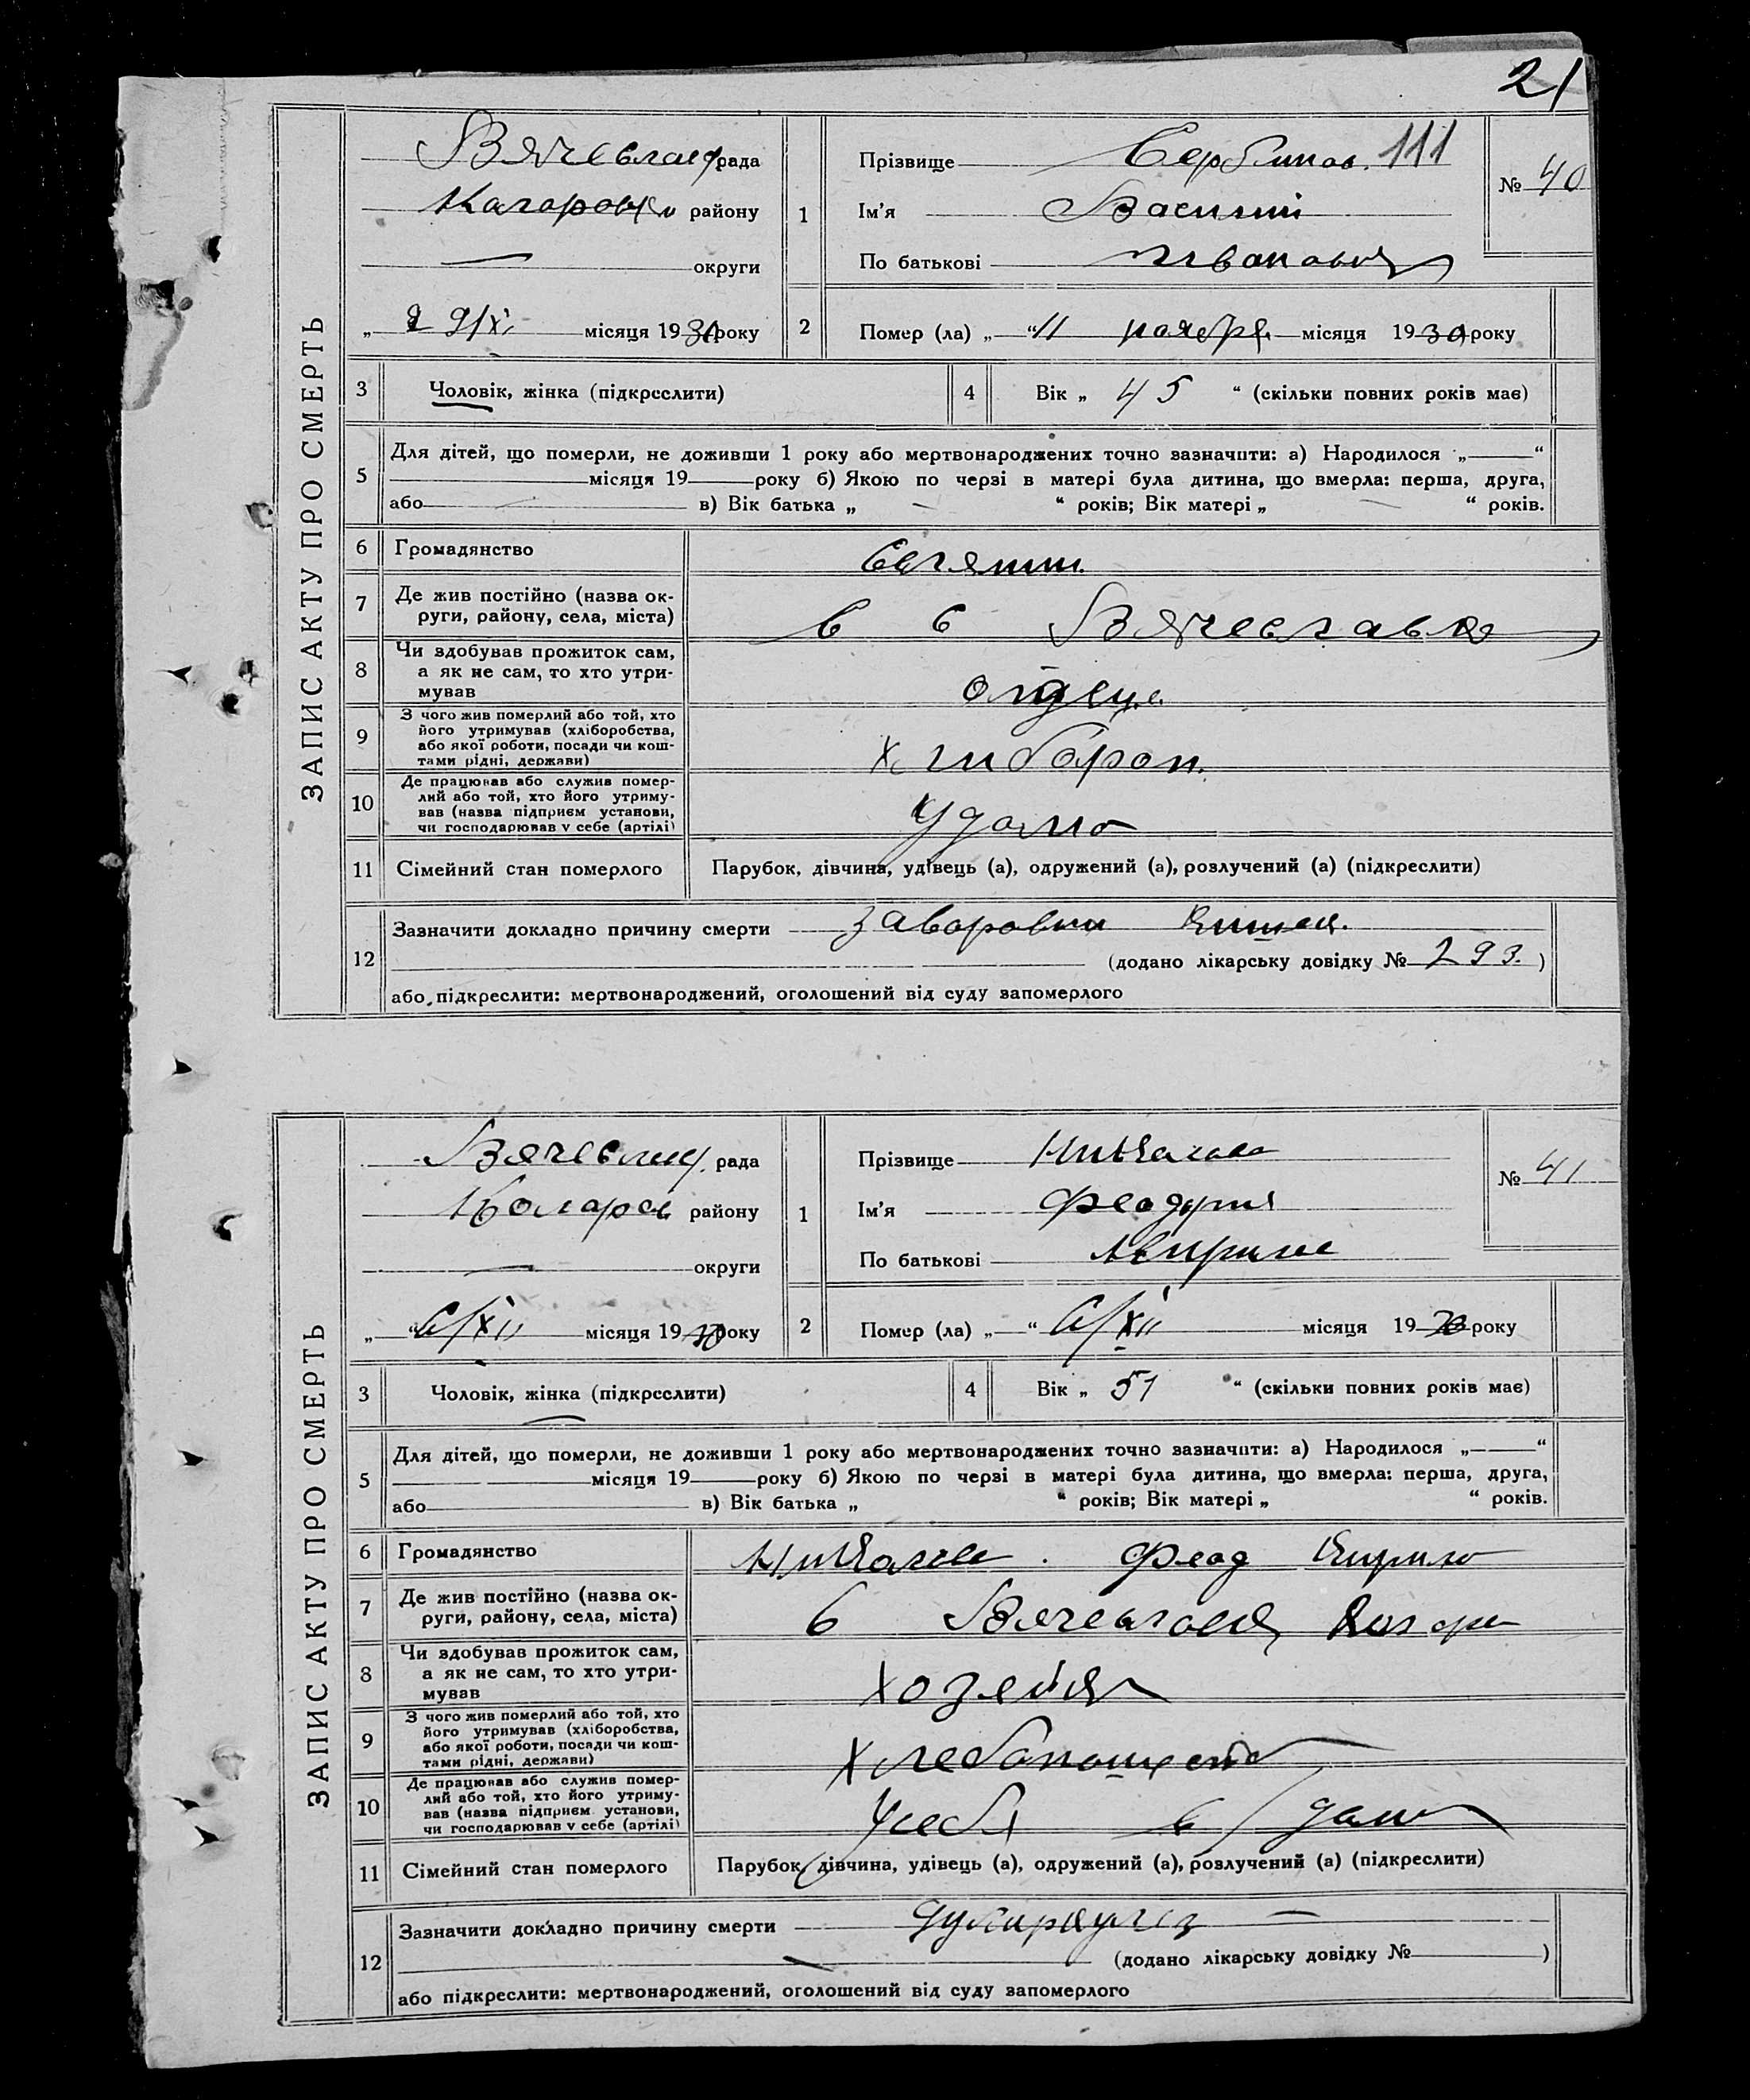 21
ЗАПИС АКТУ ПРО СМЕРТЬ
рада
району
округи
29/XI місяця 1930 року
1
Прізвище 111
Ім'я Василий
По батькові Иванович
№ 40
2
Помер (ла) „ 11 “ ноября місяця 1930 року
3
Чоловік, жінка (підкреслити)
4
Вік „ 45 “ (скільки повних років має)
5
Для дітей, що померли, не доживши 1 року або мертвонароджених точно зазначити: а) Народилося „ “
місяця 19 року б) Якою по черзі в матері була дитина, що вмерла: перша, друга,
або в) Вік батька „ “ років; Вік матері „ “ років.
6
Громадянство
7
Де жив постійно (назва ок-
руги, району, села, міста)
в с Вячеславка
8
Чи здобував прожиток сам,
а як не сам, то хто утри-
мував
9
З чого жив померлий або той, хто
його утримував (хліборобства,
або якої роботи, посади чи кош-
тами рідні, держави)
10
Де працював або служив помер-
лий або той, хто його утриму-
вав (назва підприєм установи,
чи господарював у себе (артілі)
У дома
11
Сімейний стан померлого
Парубок, дівчина, удівець (а), одружений (а), розлучений (а) (підкреслити)
12
Зазначити докладно причину смерти
(додано лікарську довідку № 293. )
або підкреслити: мертвонароджений, оголошений від суду запомерлого
ЗАПИС АКТУ ПРО СМЕРТЬ
рада
району
округи
„ “ 6/XII місяця 1930 року
1
Прізвище
Ім'я
По батькові
№ 41
2
Помер (ла) „ “ 6/XII місяця 1930 року
3
Чоловік, жінка (підкреслити)
4
Вік „ 51 “ (скільки повних років має)
5
Для дітей, що померли, не доживши 1 року або мертвонароджених точно зазначити: а) Народилося „ “
місяця 19 року б) Якою по черзі в матері була дитина, що вмерла: перша, друга,
або в) Вік батька „ “ років; Вік матері „ “ років.
6
Громадянство
Феод
7
Де жив постійно (назва ок-
руги, району, села, міста)
8
Чи здобував прожиток сам,
а як не сам, то хто утри-
мував
хозяйка
9
З чого жив померлий або той, хто
його утримував (хліборобства,
або якої роботи, посади чи кош-
тами рідні, держави)
10
Де працював або служив помер-
лий або той, хто його утриму-
вав (назва підприєм. установи,
чи господарював у себе (артілі)
11
Сімейний стан померлого
Парубок, дівчина, удівець (а), одружений (а), розлучений (а) (підкреслити)
12
Зазначити докладно причину смерти
(додано лікарську довідку № )
або підкреслити: мертвонароджений, оголошений від суду запомерлого